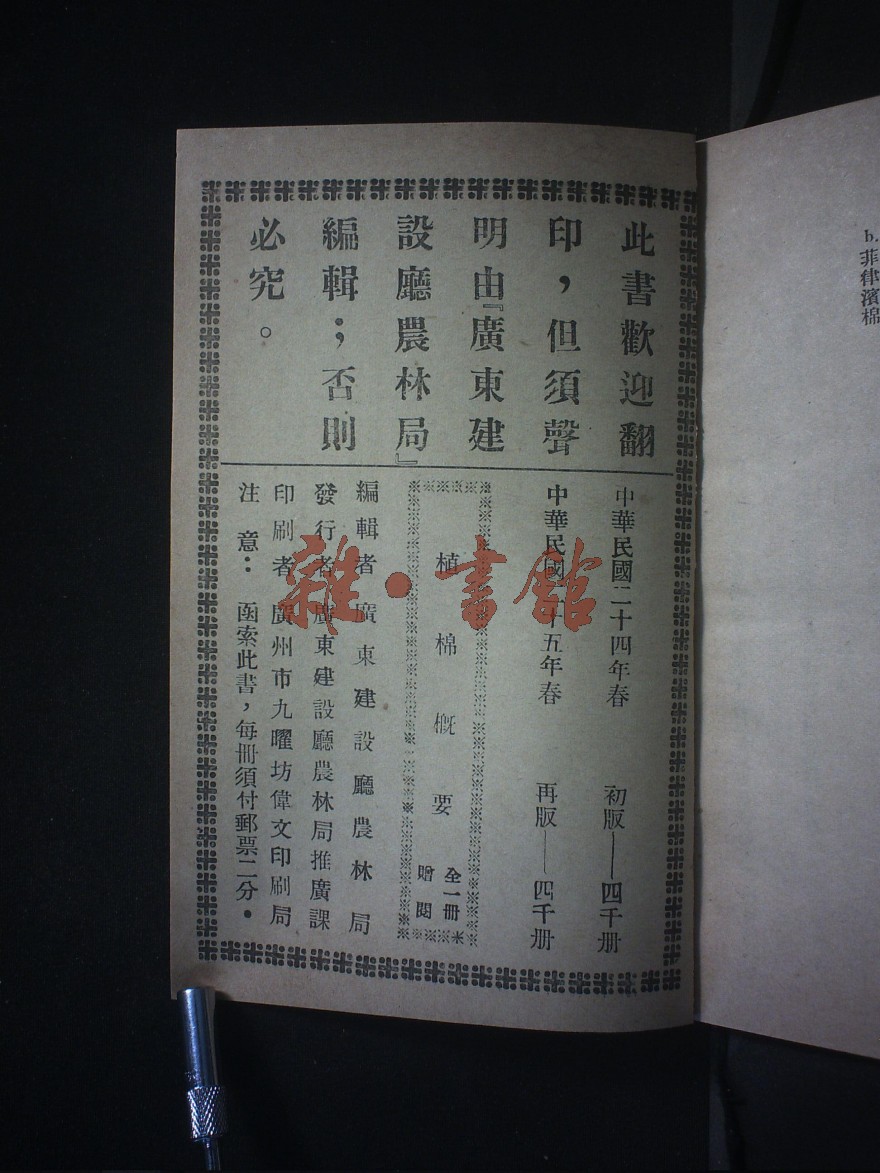 此書歡迎翻
印，但須聲
明由『廣東建
設廳農林局』
編輯；否則
必究。
中華民國二十四年春 初版——四千册
中華民國二十五年春 再版——四千册
植棉概要 全一冊 贈閱
編輯者 廣東建設廳農林局
發行者 廣東建設廳農林局推廣課
印刷者 廣州市九曜坊偉文印刷局
注意： 函索此書，每冊須付郵票二分。
雜·書館
b. 菲律濱棉